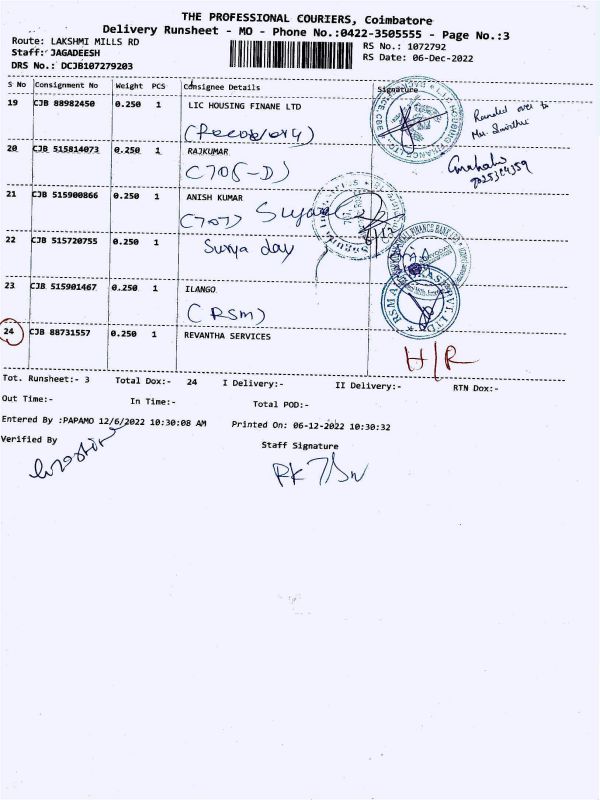 THE PROFESSIONAL COURIERS, Coimbatore
Delivery Runsheet - MO - Phone No.:0422-3505555 - Page No.:3
Route: LAKSHMI MILLS RD
RS No.: 1072792
Staff: JAGADEESH
RS Date: 06-Dec-2022
DRS No.: DCJB107279203
S No Consignment No Weight PCS Consignee Details Signature
19 CJB 88982450 0.250 1 LIC HOUSING FINANE LTD
20 CJB 515814073 0.250 1 RAJKUMAR
(706-D)
21 CJB 515900866 0.250 1 ANISH KUMAR
(707)
22 CJB 515720755 0.250 1 Surya day
23 CJB 515901467 0.250 1 ILANGO
(RSM)
24 CJB 88731557 0.250 1 REVANTHA SERVICES
H/R
Tot. Runsheet:- 3 Total Dox:- 24 I Delivery:- II Delivery:- RTN Dox:-
Out Time:- In Time:- Total POD:-
Entered By :PAPAMO 12/6/2022 10:30:08 AM Printed On: 06-12-2022 10:30:32
Verified By Staff Signature